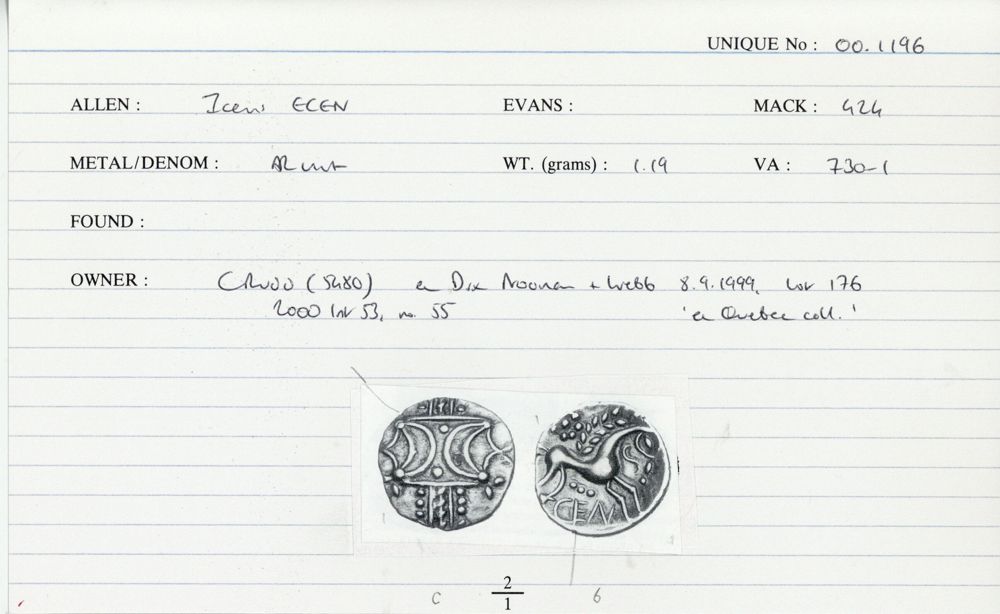 UNIQUE No : 00.1196
ALLEN : Iceni ECEN EVANS : MACK : 424
METAL/DENOM : AR unit WT. (grams) : 1.19 VA : 730-1
FOUND :
OWNER : (5480) ex Dix Noonan + Webb 8.9.1999, lot 176
2000 list 53, no. 55 'ex Quebec coll.'
CEN
2
C 6
1